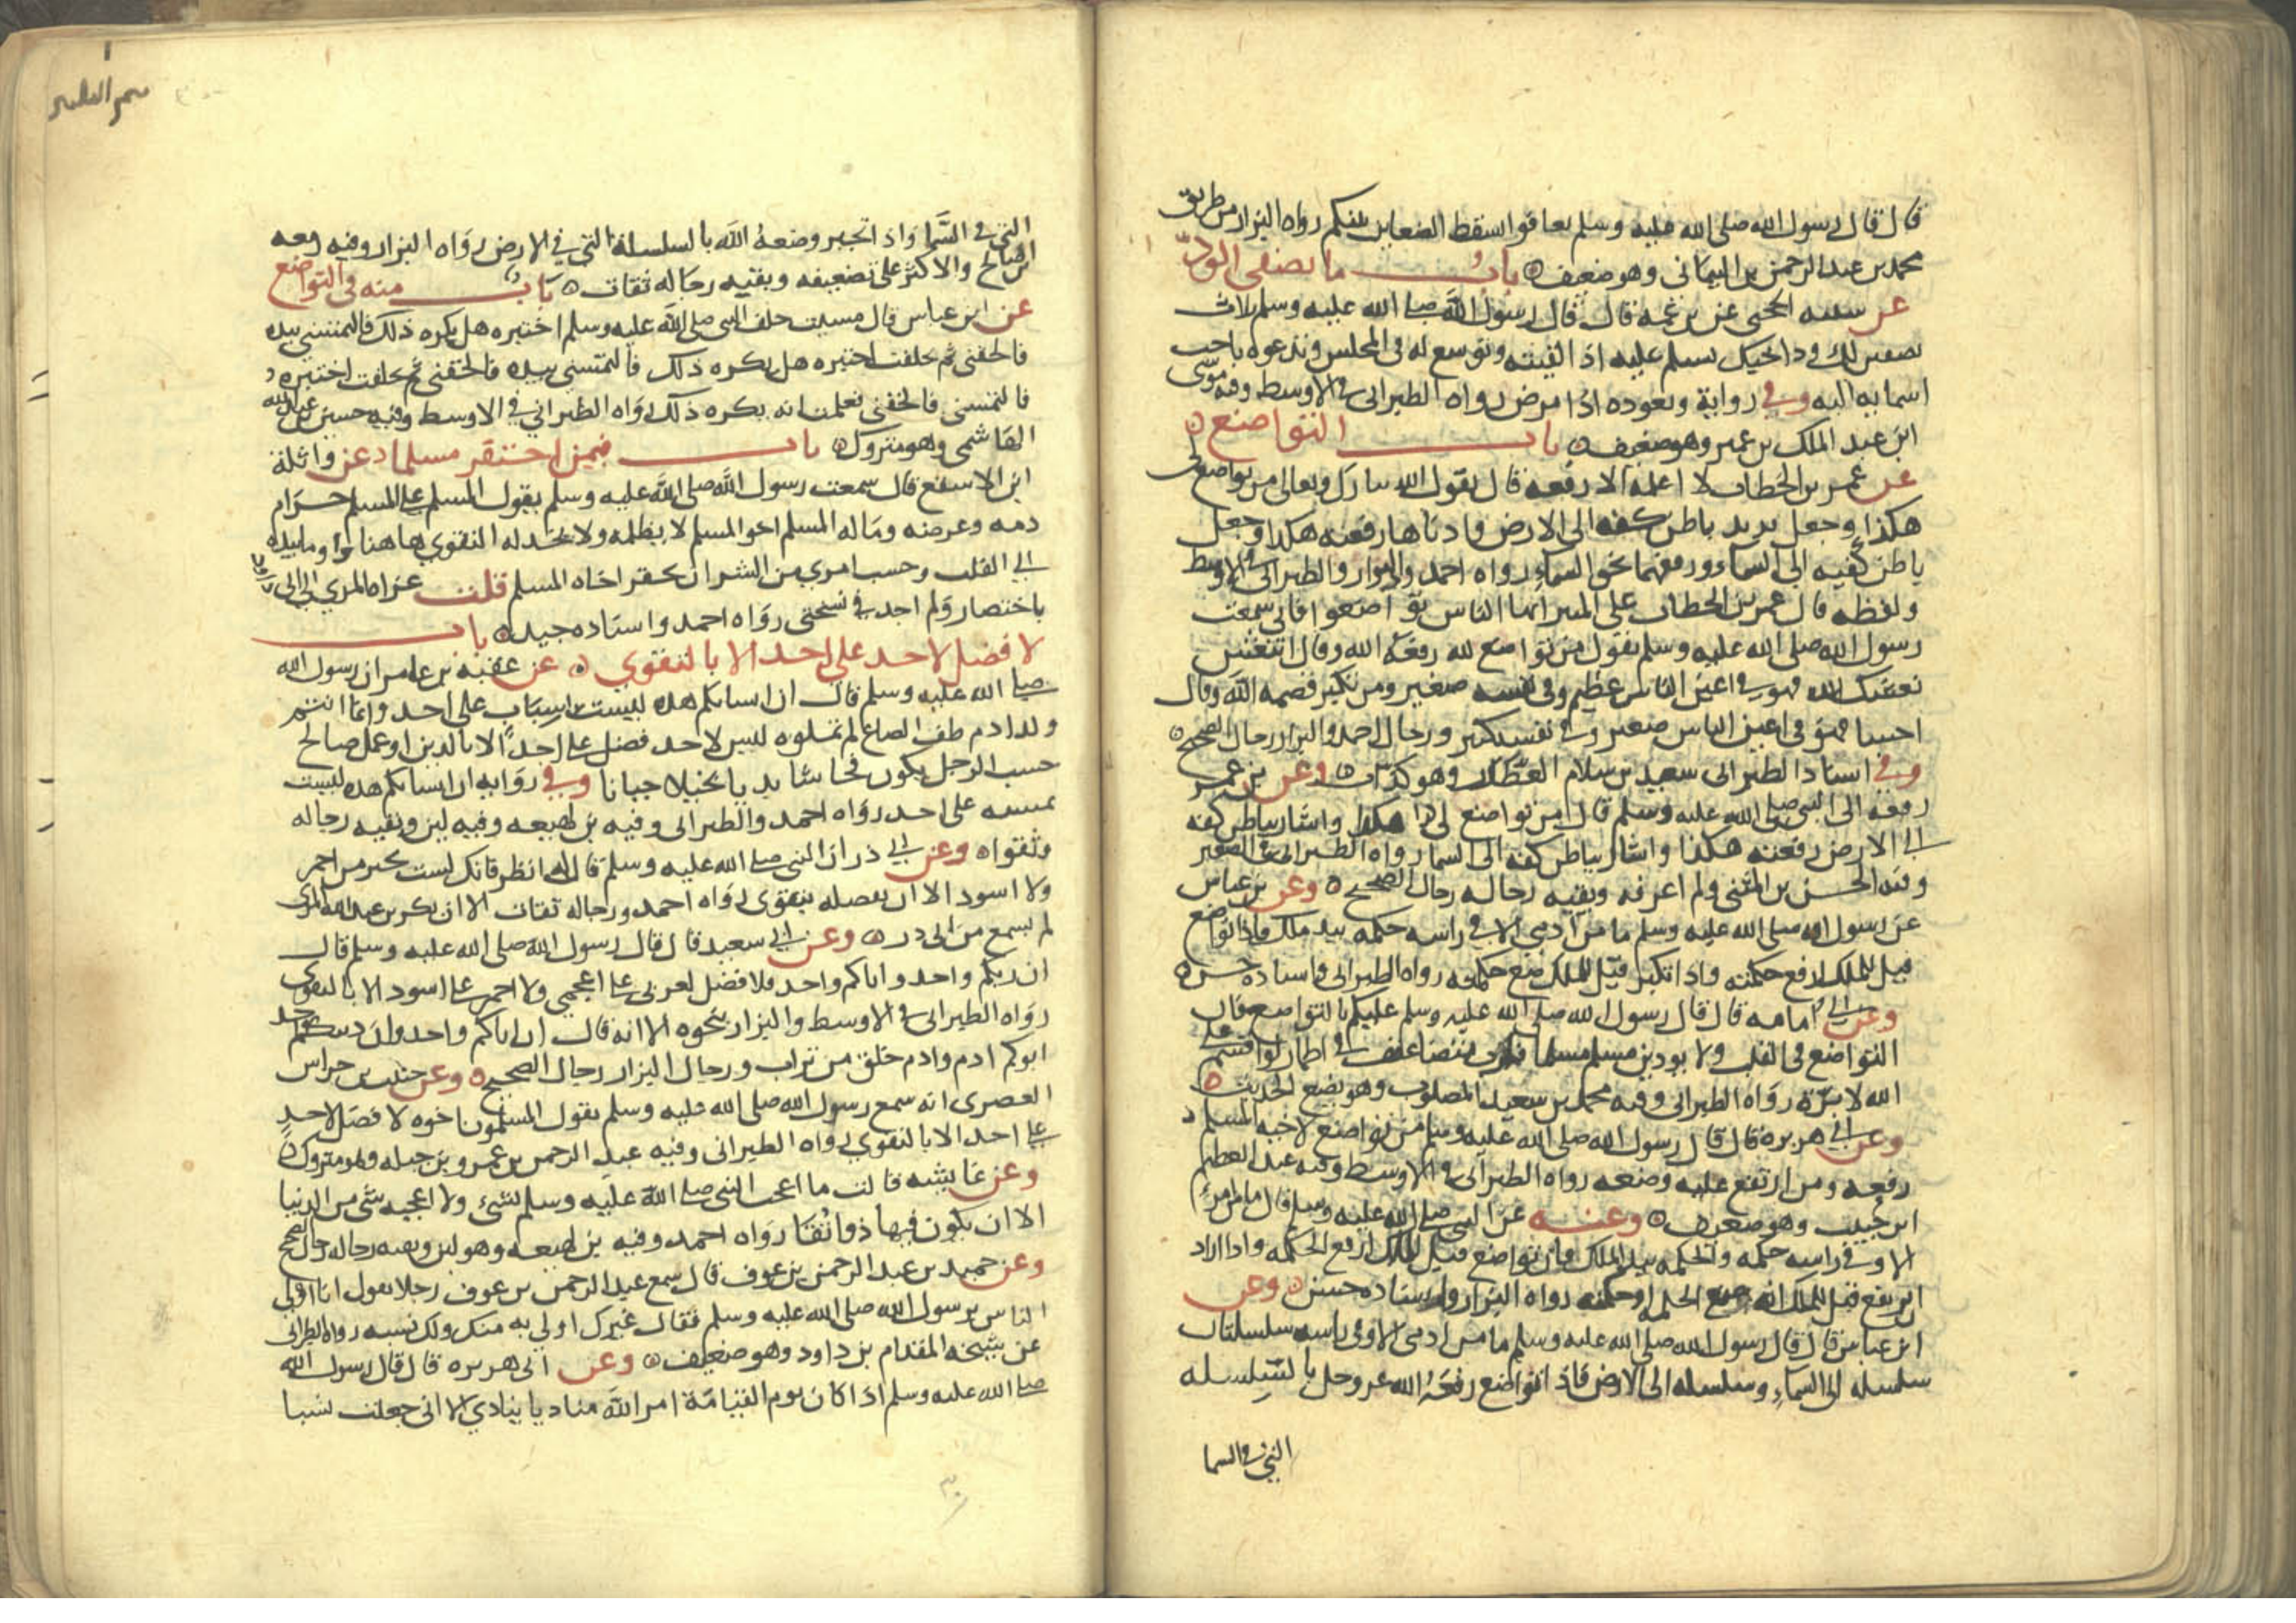 قال قال رسول الله صلى الله عليه وسلم تعافوا تسقط الضغاين بينكم رواه البزار من طريق
محمد بن عبد الرحمن بن البيلمانى وهو ضعيف باب ما يصفى الود
عن شيبة الحجبى عن عمه قال قال رسول الله صلى الله عليه وسلم ثلاث
يصفين لك ود اخيك تسلم عليه اذا لقيته وتوسع له فى المجلس وتدعوه باحب
اسمايه اليه وفي رواية وتعوده اذا مرض رواه الطبرانى فى الاوسط وفيه موسى
ابن عبد الملك بن عمير وهو ضعيف باب التواضع
عن عمر بن الخطاب لا اعلمه الا رفعه قال يقول الله تبارك وتعالى من تواضع لى
هكذا وجعل يزيد باطن كفه الى الارض وادناها رفعته هكذا وجعل
باطن كفيه الى السماء ورفعهما نحو السماء رواه احمد والبزار والطبرانى فى الاوسط
ولفظه قال عمر بن الخطاب على المنبر ايها الناس تواضعوا فانى سمعت
رسول الله صلى الله عليه وسلم يقول من تواضع لله رفعه الله وقال انتعش
نعشك الله فهو في اعين الناس عظيم وفى نفسه صغير ومن تكبر قصمه الله وقال
اخسا فهو فى اعين الناس صغير وفي نفسه كبير ورجال احمد والبزار رجال الصحيح
وفي اسناد الطبرانى سعيد بن سلام العطار وهو كذاب وعن بن عمر
رفعه الى النبى صلى الله عليه وسلم قال من تواضع لى هكذا واشار بباطن كفه
الي الارض رفعته هكذا واشار بباطن كفه الى السما رواه الطبرانى فى الصغير
وفيه الحسن بن المثنى ولم اعرفه وبقيه رجاله رجال الصحيح وعن بن عباس
عن رسول الله صلى الله عليه وسلم ما من آدمي الا في راسه حكمه بيد ملك فاذا تواضع
قيل للملك ارفع حكمته واذا تكبر قيل للملك ضع حكمته رواه الطبرانى واسناده حسن
وعن ابي امامه قال قال رسول الله صلى الله عليه وسلم عليكم بالتواضع فان
التواضع فى القلب ولا يوذين مسلم مسلما فلرب متضاعف في اطمار لو اقسم على
الله لابرّه رواه الطبرانى وفيه محمد بن سعيد المصلوب وهو يضع الحديث
وعن ابي هريره قال قال رسول الله صلى الله عليه وسلم من تواضع لاخيه المسلم
رفعه ومن ارتفع عليه وضعه رواه الطبرانى فى الاوسط وفيه عبد العظيم
ابن حبيب وهو ضعيف وعنه عن النبى صلى الله عليه وسلم قال ما من امرئ
الا وفي راسه حكمه والحكمه بيد الملك فان تواضع قيل للملك ارفع الحكمه واذا اراد
ان يرفع قيل للملك ضع الحكمه او حكمته رواه البزار واسناده حسن وعن
ابن عباس قال قال رسول الله صلى الله عليه وسلم ما من ادمى الا وفى راسه سلسلتان
سلسله الى السماء وسلسله الى الارض فاذا تواضع رفعه الله عز وجل بالسلسله
التي فى السما
التي في السَّما واذا تجبر وضعه الله بالسلسلة التى في الارض رواه البزار وفيه زمعه
ابن صالح والاكثر على تضعيفه وبقيه رجاله ثقات باب منه فى التواضع
عن ابن عباس قال مشيت خلف النبى صلى الله عليه وسلم اختبره هل يكره ذلك فالتمسنى بيده
فالحقنى ثم تخلفت اختبره هل يكره ذلك فالتمسنى بيده فالحقنى ثم تخلفت اختبره
فالتمسنى فالحقنى فعلمت انه يكره ذلك رواه الطبرانى في الاوسط وفيه حسين بن عبد الله
الهاشمى وهو متروك باب فيمن احتقر مسلما عن واثلة
ابن الاسقع قال سمعت رسول الله صلى الله عليه وسلم يقول المسلم على المسلم حرام
دمه وعرضه وماله المسلم اخو المسلم لا يظلمه ولا يخذله التقوى هاهنا واوما بيده
الي القلب وحسب امرى من الشر ان يحقر اخاه المسلم قلت عزاه المزي الى
باختصار ولم اجده في نسختى رواه احمد واسناده جيد باب
لا فضل لاحد على احد الا بالتقوى عن عقبة بن عامر ان رسول الله
صلى الله عليه وسلم قال ان انسابكم هذه ليست بسباب على احد وانما انتم
ولد ادم طف الصاع لم تملوه ليس لاحد فضل على احد الا بالدين او عمل صالح
حسب الرجل يكون فحاشا بذيا بخيلا جبانا وفي روايه ان انسابكم هذه ليست
بمسبه على احد رواه احمد والطبرانى وفيه بن لهيعه وفيه لين وبقيه رجاله
وثقوا وعن ابي ذر ان النبى صلى الله عليه وسلم قال له انظر فانك لست بخير من احمر
ولا اسود الا ان تفضله بتقوى رواه احمد ورجاله ثقات الا ان بكر بن عبد الله المزنى
لم يسمع من ابى ذر وعن ابي سعيد قال قال رسول الله صلى الله عليه وسلم قال
ان ربكم واحد واباكم واحد فلا فضل لعربى على اعجمى ولا احمر على اسود الا بالتقوى
رواه الطبرانى فى الاوسط والبزار بنحوه الا انه قال ان اباكم واحد وان دينكم واحد
ابوكم ادم وادم خلق من تراب ورجال البزار رجال الصحيح وعن حبيب بن خراش
العصرى انه سمع رسول الله صلى الله عليه وسلم يقول المسلمون اخوه لا فضل لاحد
على احد الا بالتقوى رواه الطبرانى وفيه عبد الرحمن بن عمرو بن جبله وهو متروك
وعن عايشه قالت ما اعجب النبى صلى الله عليه وسلم شئ ولا اعجبه شى من الدنيا
الا ان يكون فيها ذو تُقَا رواه احمد وفيه بن لهيعه وهو لين وبقيه رجاله رجال الصحيح
وعن حميد بن عبد الرحمن بن عوف قال سمع عبد الرحمن بن عوف رجلا يقول انا اولى
الناس برسول الله صلى الله عليه وسلم فقال غيرك اولى به منك ولك نسبه رواه الطبرانى
عن شيخه المقدام بن داود وهو ضعيف وعن ابى هريره قال قال رسول الله
صلى الله عليه وسلم اذا كان يوم القيامة امر الله مناديا ينادي الا انى جعلت نسبا